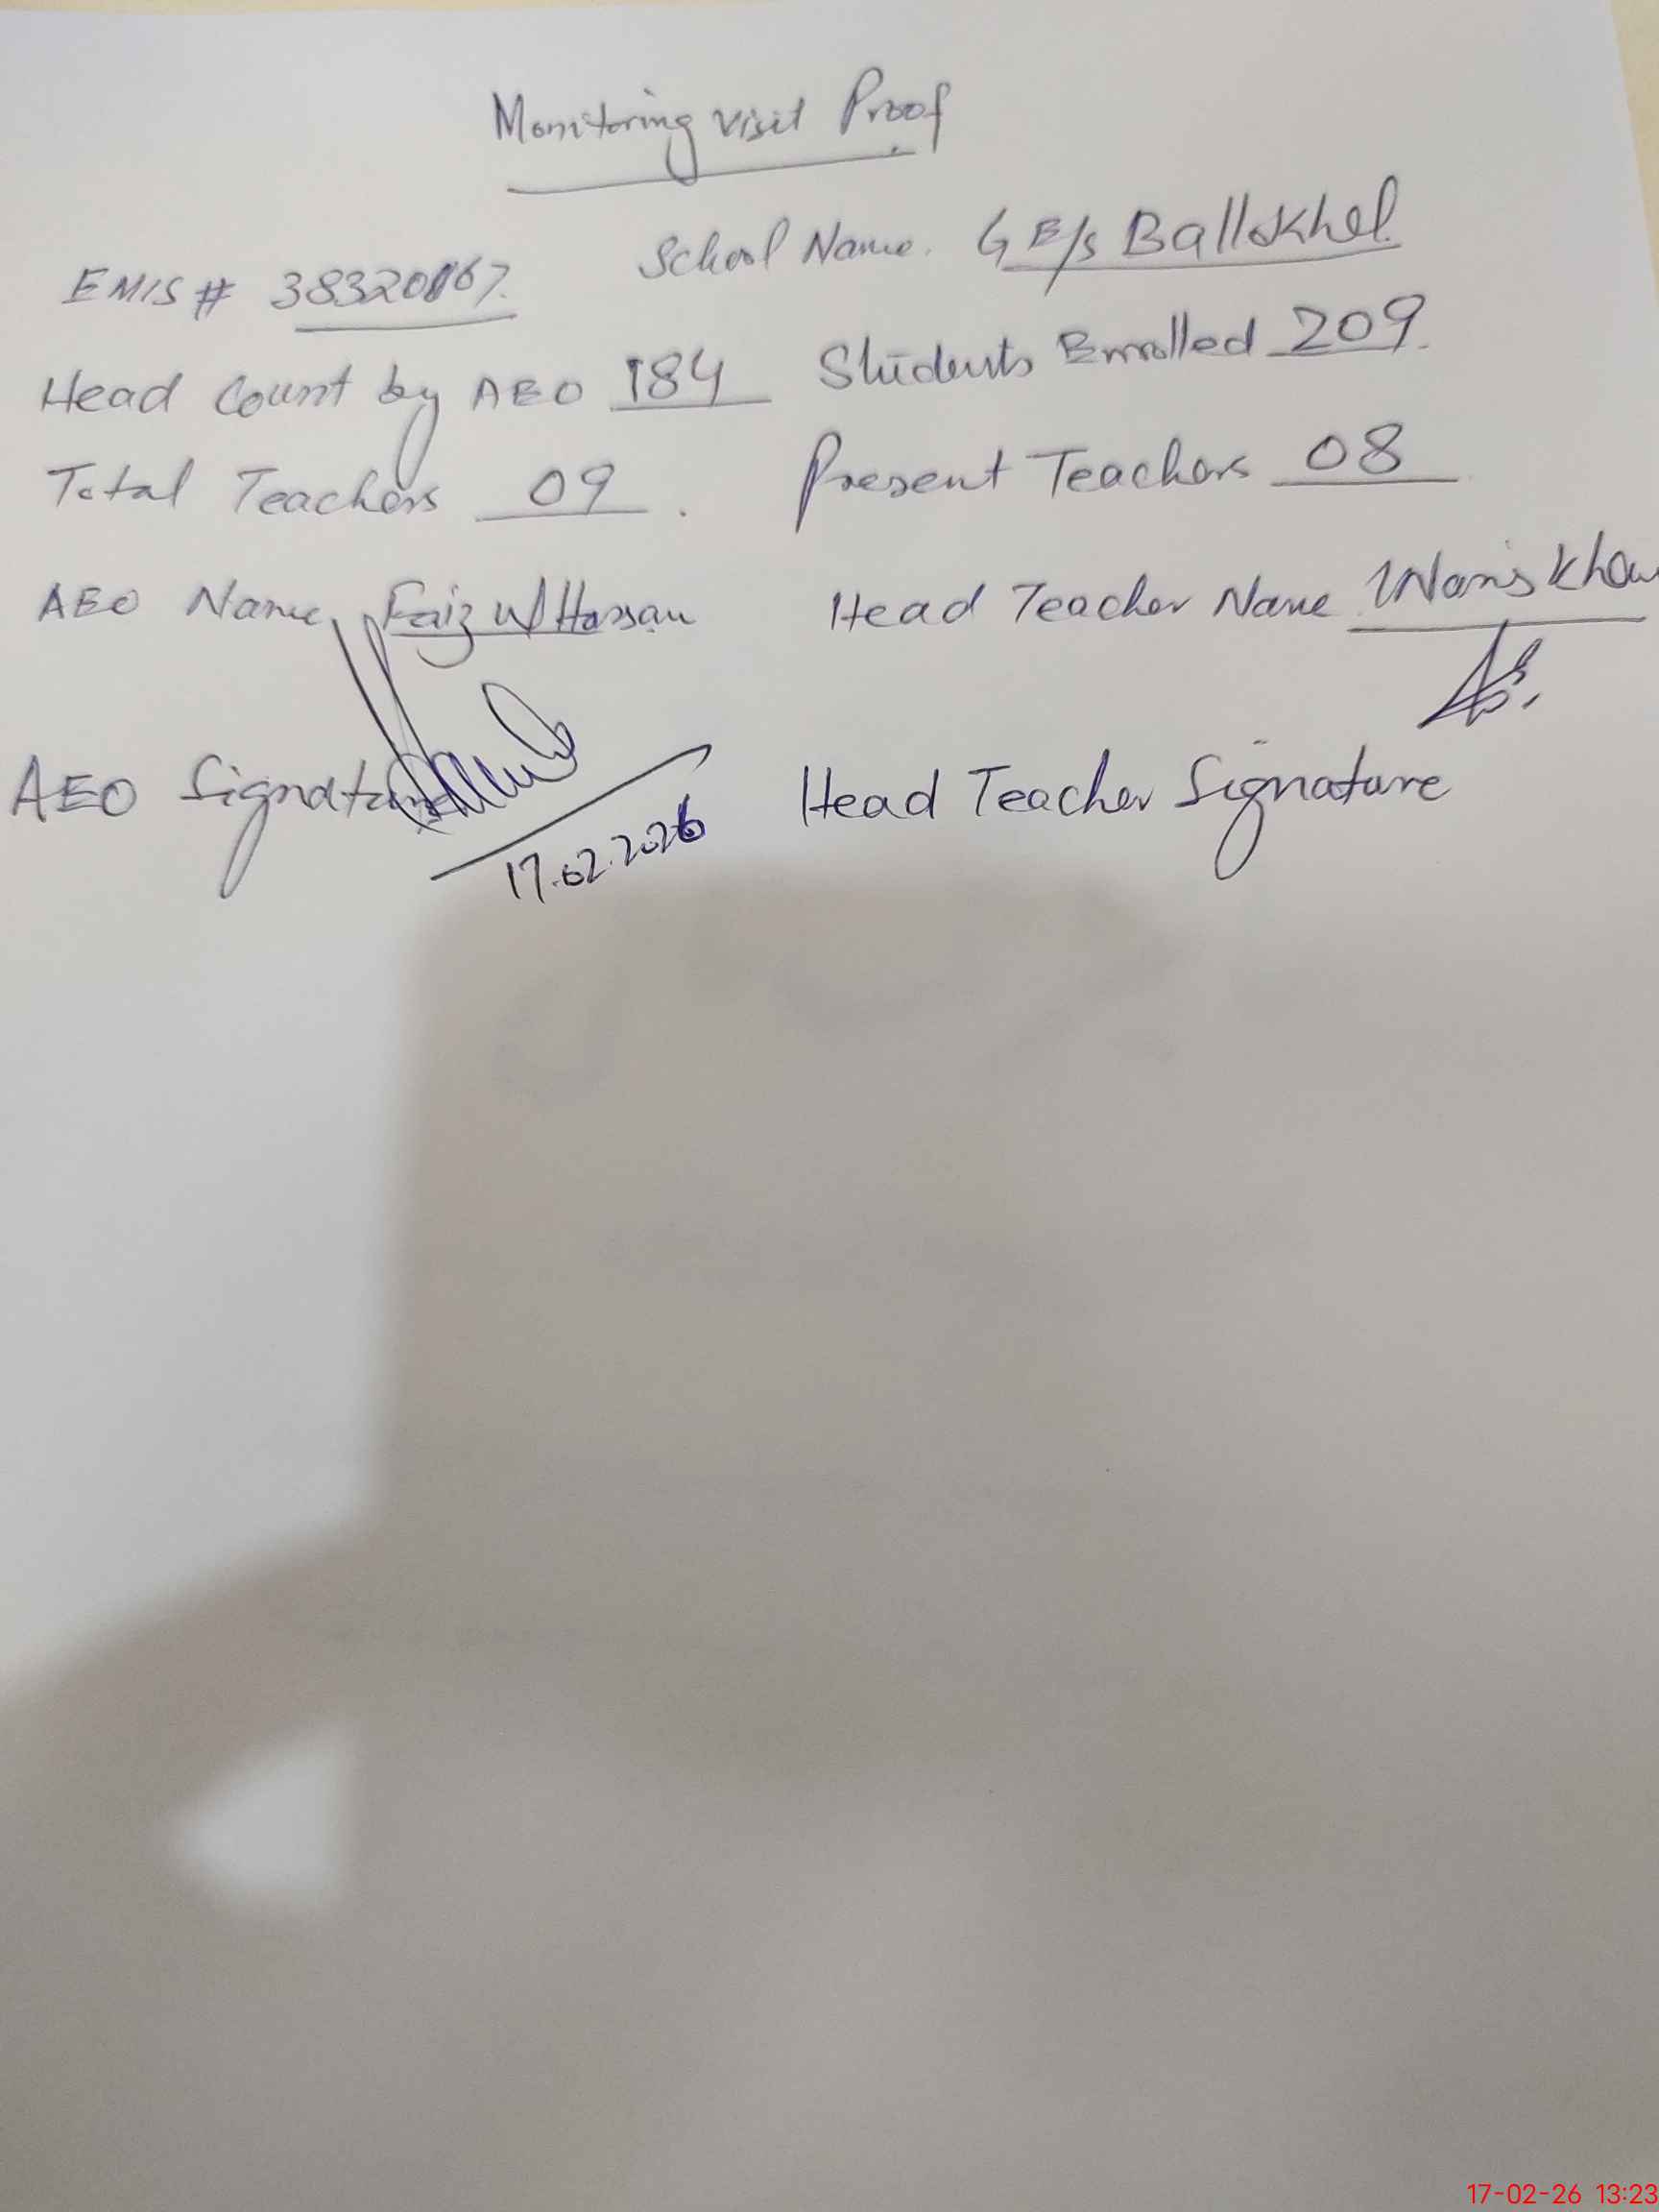 Monitoring visit Proof
EMIS # 38320167. School Name. GE/s Ballokhel
Head Count by AEO 184 Students Enrolled 209.
Total Teachers 09. Present Teachers 08
AEO Name Faiz ul Hassan Head Teacher Name Waris Khan
AEO Signature Head Teacher Signature
17.02.2026
17-02-26 13:23